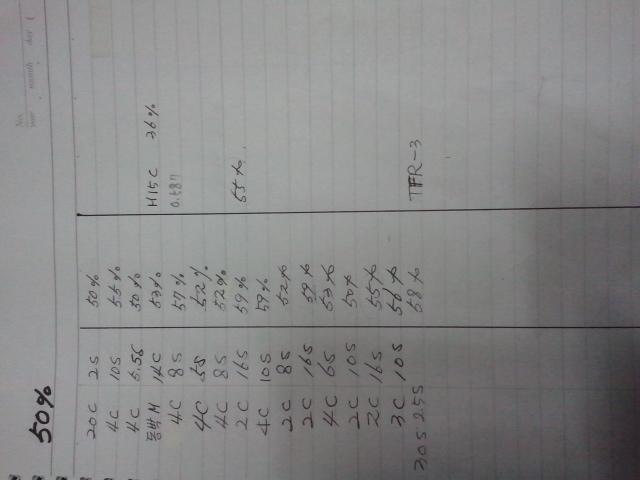 No.
year month day (
50%
20C 2S 50%
4C 10S 55%
4C 50%
동박M 14C 53% H15C 36%
4C 8S 57% 0.587
4C 5S 52%
4C 8S 52%
2C 16S 59% 55%
4C 10S 59%
2C 8S 52%
2C 16S 59%
4C 6S 53%
2C 10S 50%
2C 16S 55%
3C 10S 56%
30S 25S 58% TFR-3